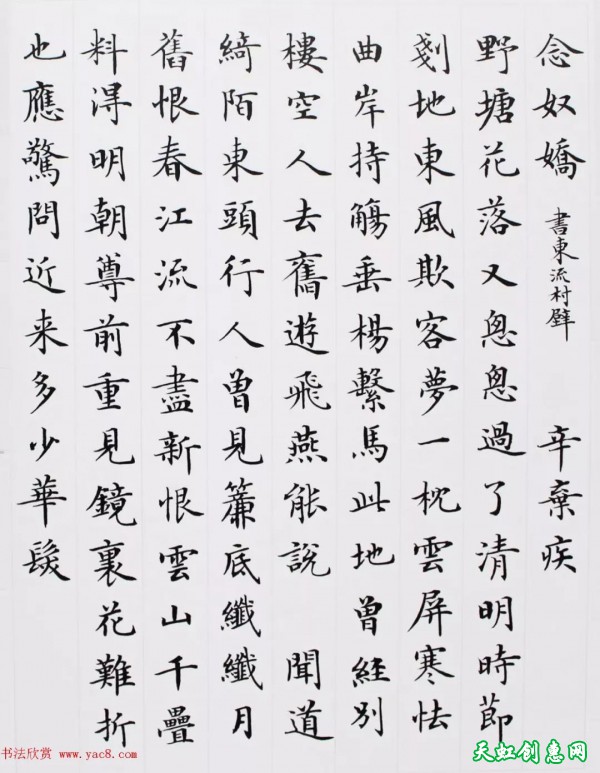 念奴嬌 書東流村壁 辛棄疾
野塘花落又怱怱過了清明時節
剗地東風欺客夢一枕雲屏寒怯
曲岸持觴垂楊繫馬此地曾經別
樓空人去舊遊飛燕能說 聞道
綺陌東頭行人曾見簾底纖纖月
舊恨春江流不盡新恨雲山千疊
料得明朝尊前重見鏡裏花難折
也應驚問近来多少華髮
书法欣赏 www.yac8.com
天虹创惠网